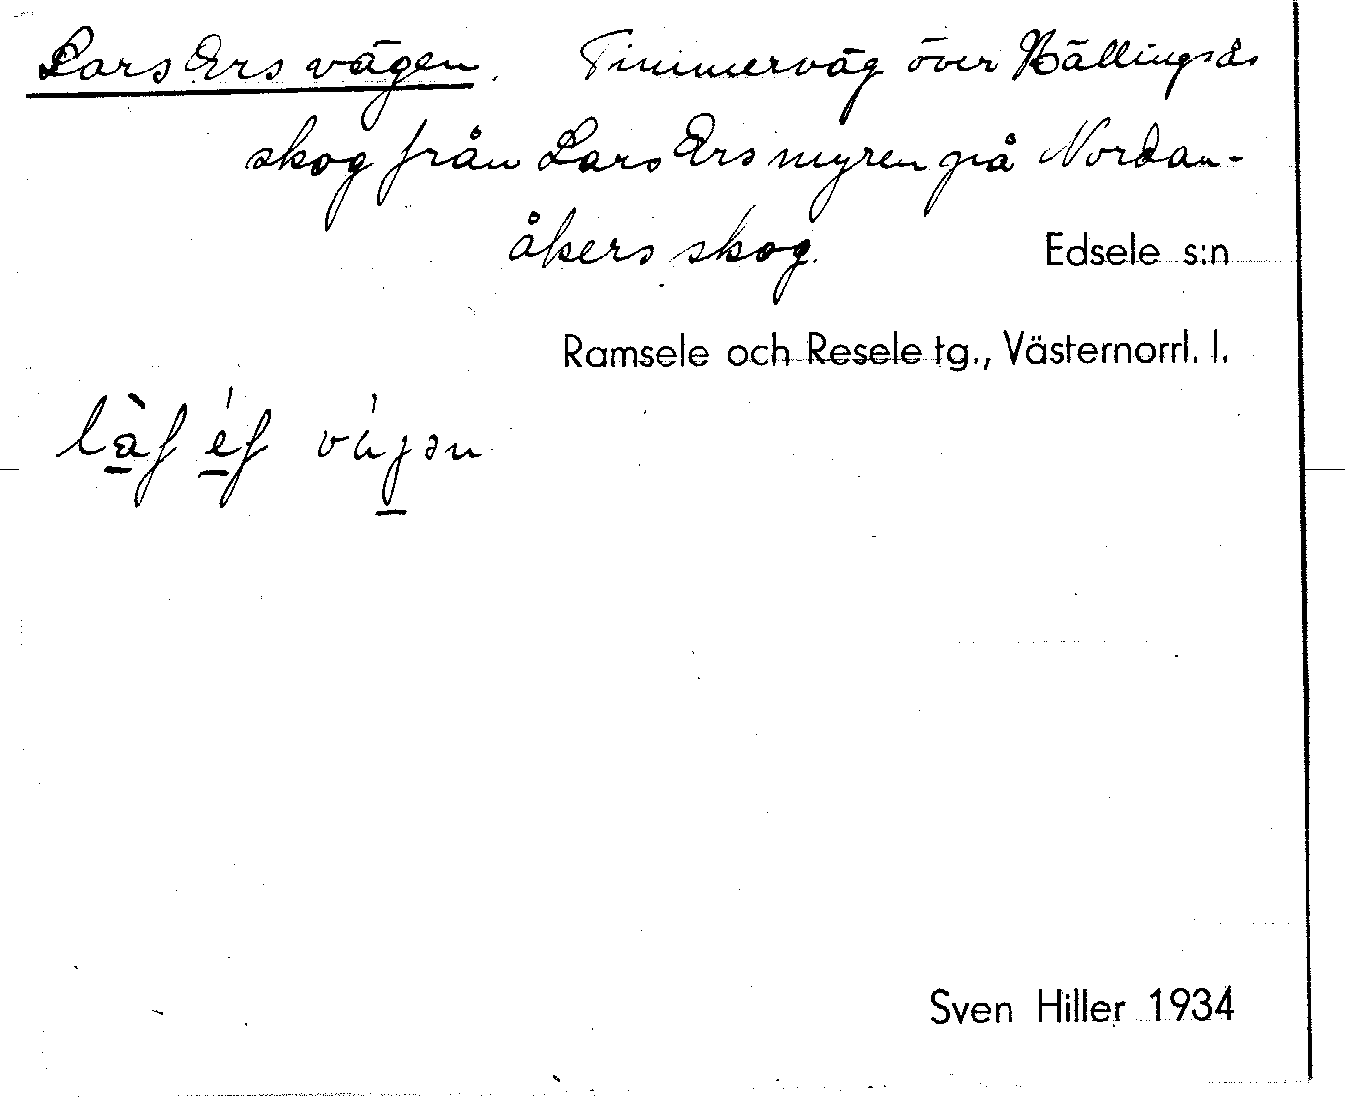 Lars Ers vägen. Timmerväg över Hällingsås
skog från Lars Ers myren på Nordan-
åkers skog.
Edsele s:n
Ramsele och Resele tg., Västernorrl. l.
vägən
Sven Hiller 1934